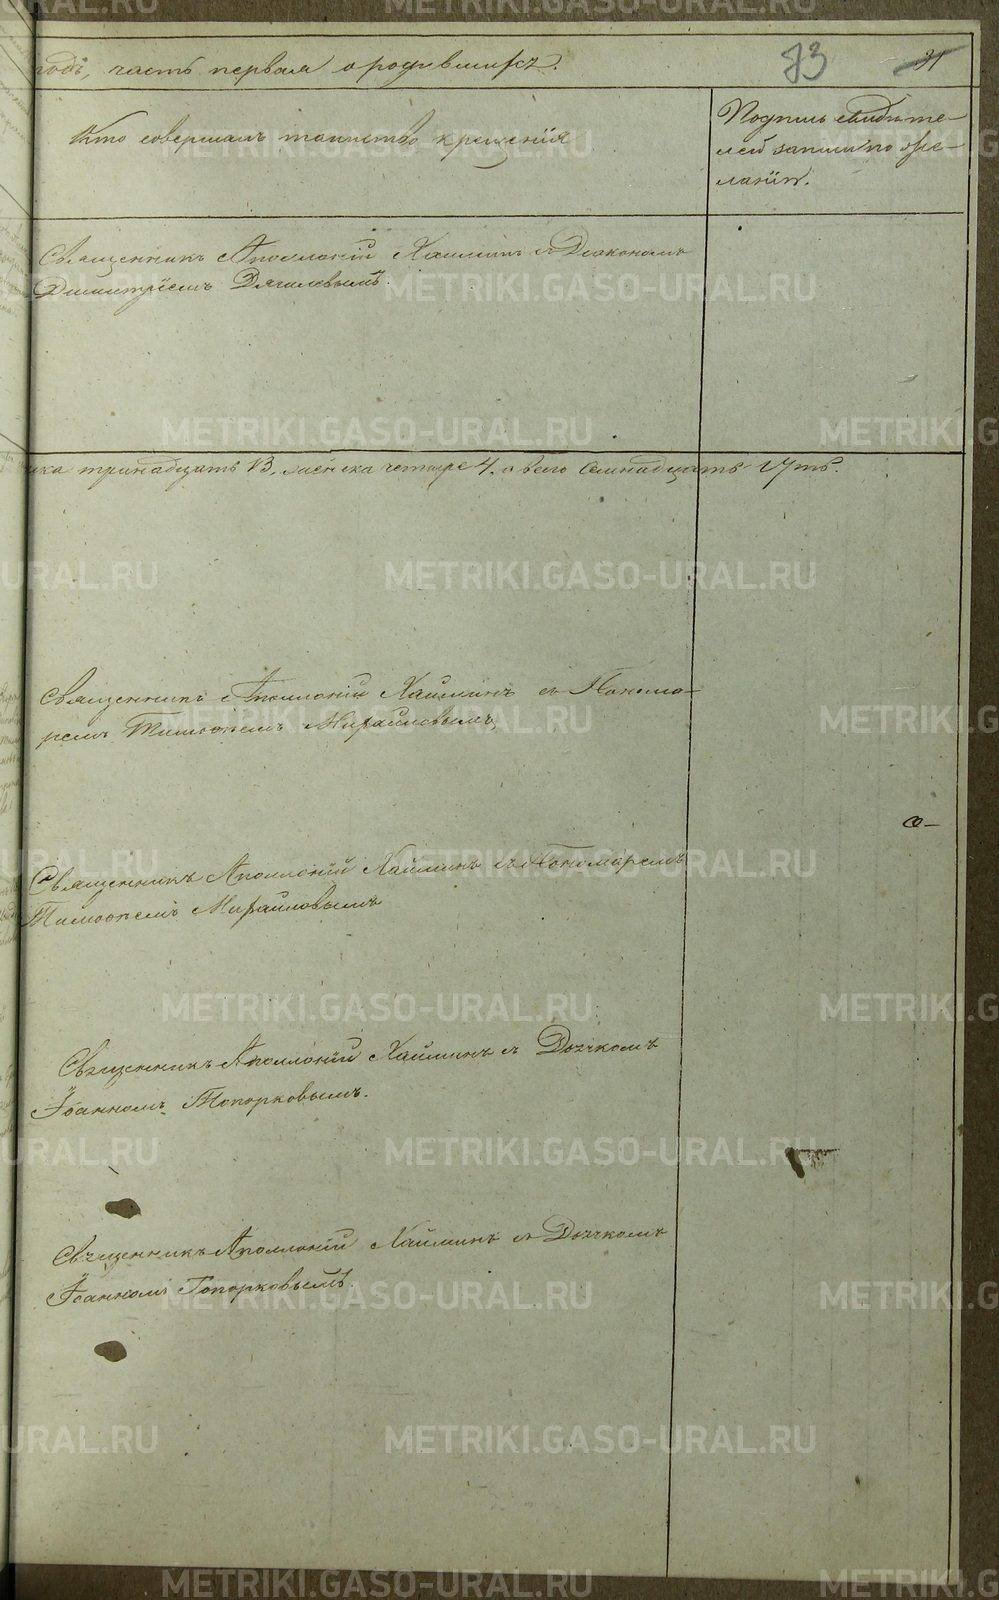 METRIKI.GASO-URAL.RU
годъ, часть первая о родившихся.
73
31
Кто совершалъ таинство крещенія
Подпись свидѣте-
лей записи по же-
ланію.
Священникъ Аполлоній Хайминъ съ Діакономъ
Димитріемъ Дягилевымъ.
тринадцать 13, женска четыре 4, а всего семнадцать 17ть.
Священникъ Аполлоній Хайминъ съ Понома-
ремъ Тимоѳеемъ Михайловымъ
Священникъ Аполлоній Хайминъ съ Пономаремъ
Тимоѳеемъ Михайловымъ
Священникъ Аполлоній Хайминъ съ Дьячкомъ
Іоанномъ Топорковымъ.
Священникъ Аполлоній Хайминъ съ Дьячкомъ
Іоанномъ Топорковымъ.